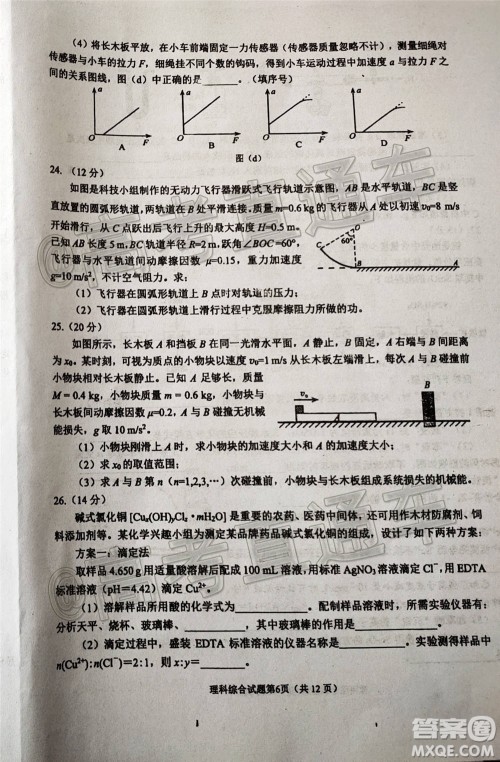 （4）将长木板平放，在小车前端固定一力传感器（传感器质量忽略不计），测量细绳对
传感器的拉力
间的关系图线，图（d）中正确的是 ______。（填序号）
a a a a
O F O F O F O F
A B C D
图（d）
24.（12分）
如图是科技小组制作的无动力飞行器滑跃式飞行轨道示意图，AB是水平轨道，BC是竖
直放置的圆弧形轨道，两轨道在B处平滑连接。飞行器质量m=0.6 kg的飞行器从A处以初速v₀=8 m/s
开始滑行，从C处跃升后的最大高度H=0.5 m。
已知AB长度5 m，BC轨道半径R=2 m，跃升角∠BOC=60°，
飞行器与水平轨道间动摩擦因数μ=0.15，重力加速度
g=10 m/s²，不计空气阻力。求：
（1）飞行器在圆弧形轨道上B点时对轨道的压力；
（2）飞行器在圆弧形轨道上滑行过程中克服摩擦阻力所做的功。
C O 60° B A
25.（20分）
如图所示，长木板A和挡板B在同一光滑水平面上，A静止，B固定，A右端与B距离
为x₀。某时刻，可视为质点的小物块以速度v₀=1 m/s从长木板左端滑上，每次A与B碰撞前
小物块相对长木板静止。已知A足够长，质量
M = 0.4 kg，小物块质量m = 0.6 kg，小物块与
长木板间动摩擦因数μ=0.2，A与B碰撞无机械
能损失，g取10 m/s²。
v₀ A B
（1）小物块刚滑上A时，求小物块的加速度大小和A的加速度大小；
（2）求x₀的取值范围；
（3）求A与B第n（n=1,2,3,⋯）次碰撞前，小物块与长木板组成系统损失的机械能。
26.（14分）
碱式氯化铜[Cuₐ(OH)ᵧClz·mH₂O]是重要的农药、医药中间体，还可用作木材防腐剂、饲
料添加剂等。某化学兴趣小组为测定某品牌药品碱式氯化铜的组成，设计了如下两种方案：
方案一：滴定法
取样品4.650 g用适量酸溶解后配成100 mL溶液，用标准AgNO₃溶液滴定Cl⁻，用EDTA
标准溶液（pH=4.42）滴定Cu²⁺。
（1）溶解样品所用酸的化学式为______。配制样品溶液时，所需的实验仪器有：
分析天平、烧杯、玻璃棒、______、______，其中玻璃棒的作用是______。
（2）滴定过程中，盛装EDTA标准溶液的仪器名称是______，若滴定结果表明
n(Cu²⁺):n(Cl⁻)=2:1，则x:y=______。
理科综合试题第6页（共12页）